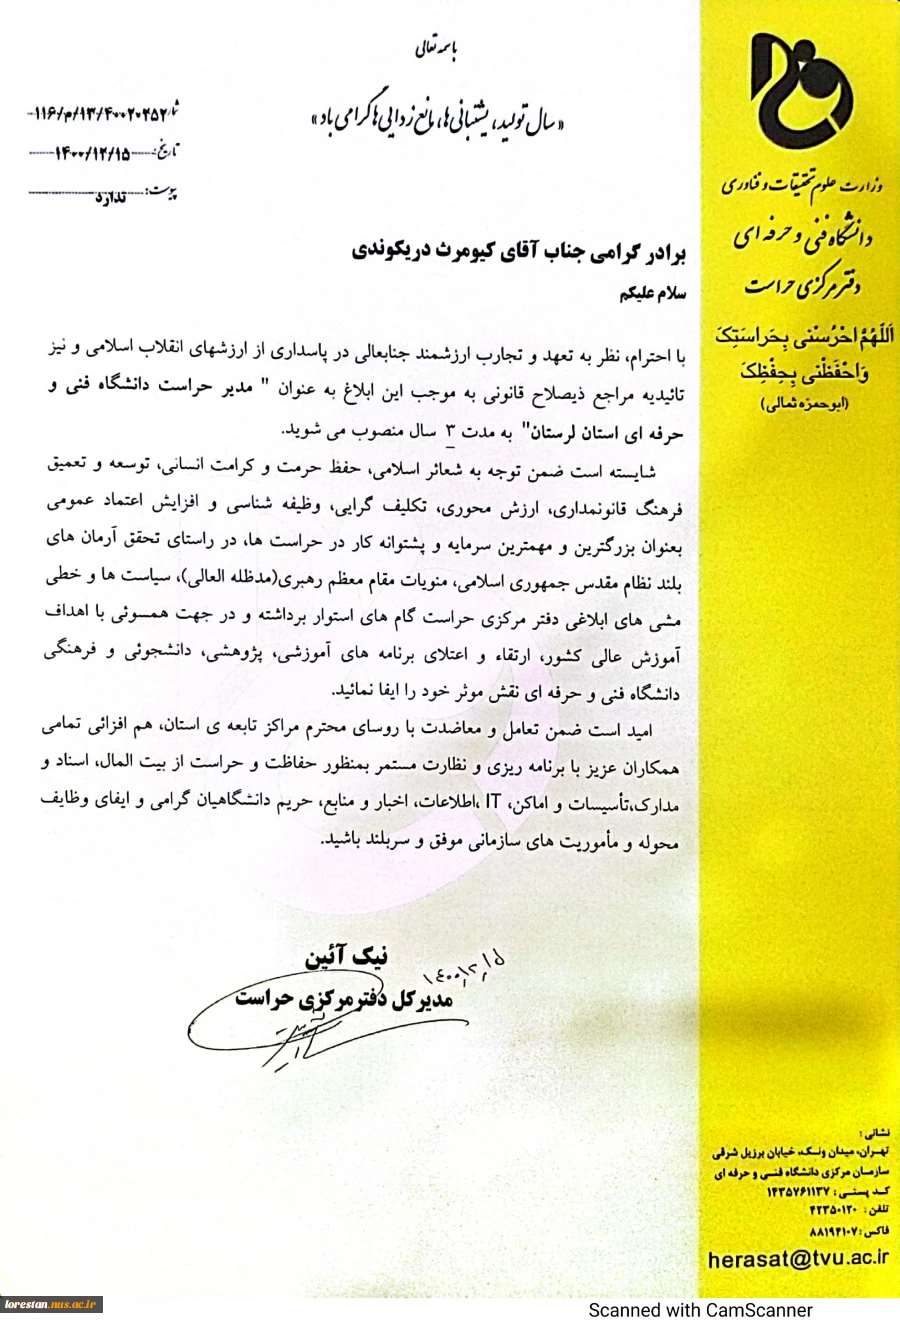 باسمه تعالی
«سال تولید، پشتیبانی ها، مانع زدایی ها گرامی باد»
شماره: ۱۱۶/م/۱۳/۴۰۰۲۰۲۵۲
تاریخ: ۱۴۰۰/۱۲/۱۵
پیوست: ندارد
وزارت علوم تحقیقات و فناوری
دانشگاه فنی و حرفه ای
دفتر مرکزی حراست
اَللّهُمَّ احْرُسْنی بِحَراسَتِکَ
وَاحْفَظْنی بِحِفْظِکَ
(ابوحمزه ثمالی)
برادر گرامی جناب آقای کیومرث دریکوندی
سلام علیکم
با احترام، نظر به تعهد و تجارب ارزشمند جنابعالی در پاسداری از ارزشهای انقلاب اسلامی و نیز
تائیدیه مراجع ذیصلاح قانونی به موجب این ابلاغ به عنوان " مدیر حراست دانشگاه فنی و
حرفه ای استان لرستان" به مدت ۳ سال منصوب می شوید.
شایسته است ضمن توجه به شعائر اسلامی، حفظ حرمت و کرامت انسانی، توسعه و تعمیق
فرهنگ قانونمداری، ارزش محوری، تکلیف گرایی، وظیفه شناسی و افزایش اعتماد عمومی
بعنوان بزرگترین و مهمترین سرمایه و پشتوانه کار در حراست ها، در راستای تحقق آرمان های
بلند نظام مقدس جمهوری اسلامی، منویات مقام معظم رهبری(مدظله العالی)، سیاست ها و خطی
مشی های ابلاغی دفتر مرکزی حراست گام های استوار برداشته و در جهت همسوئی با اهداف
آموزش عالی کشور، ارتقاء و اعتلای برنامه های آموزشی، پژوهشی، دانشجوئی و فرهنگی
دانشگاه فنی و حرفه ای نقش موثر خود را ایفا نمائید.
امید است ضمن تعامل و معاضدت با روسای محترم مراکز تابعه ی استان، هم افزائی تمامی
همکاران عزیز با برنامه ریزی و نظارت مستمر بمنظور حفاظت و حراست از بیت المال، اسناد و
مدارک،تأسیسات و اماکن، IT ،اطلاعات، اخبار و منابع، حریم دانشگاهیان گرامی و ایفای وظایف
محوله و مأموریت های سازمانی موفق و سربلند باشید.
نیک آئین
۱۴۰۰،۱۲،۱۵
مدیرکل دفترمرکزی حراست
نشانی :
تهران، میدان ونک، خیابان برزیل شرقی
سازمان مرکزی دانشگاه فنی و حرفه ای
کد پستی: ۱۴۳۵۷۶۱۱۳۷
تلفن: ۴۲۳۵۰۱۲۰
فاکس: ۸۸۱۹۴۱۰۷
herasat@tvu.ac.ir
lorestan.nus.ac.ir
Scanned with CamScanner